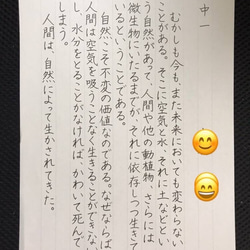 中一
むかしも今も、また未来においても変わらない
ことがある。そこに空気と水、それに土などとい
う自然があって、人間や他の動植物、さらには
微生物にいたるまでが、それに依存しつつ生きて
いるということである。
自然こそ不変の価値なのである。なぜならば、
人間は空気を吸うことなく生きることができない
し、水分をとることがなければ、かわいて死んで
しまう。
人間は、自然によって生かされてきた。